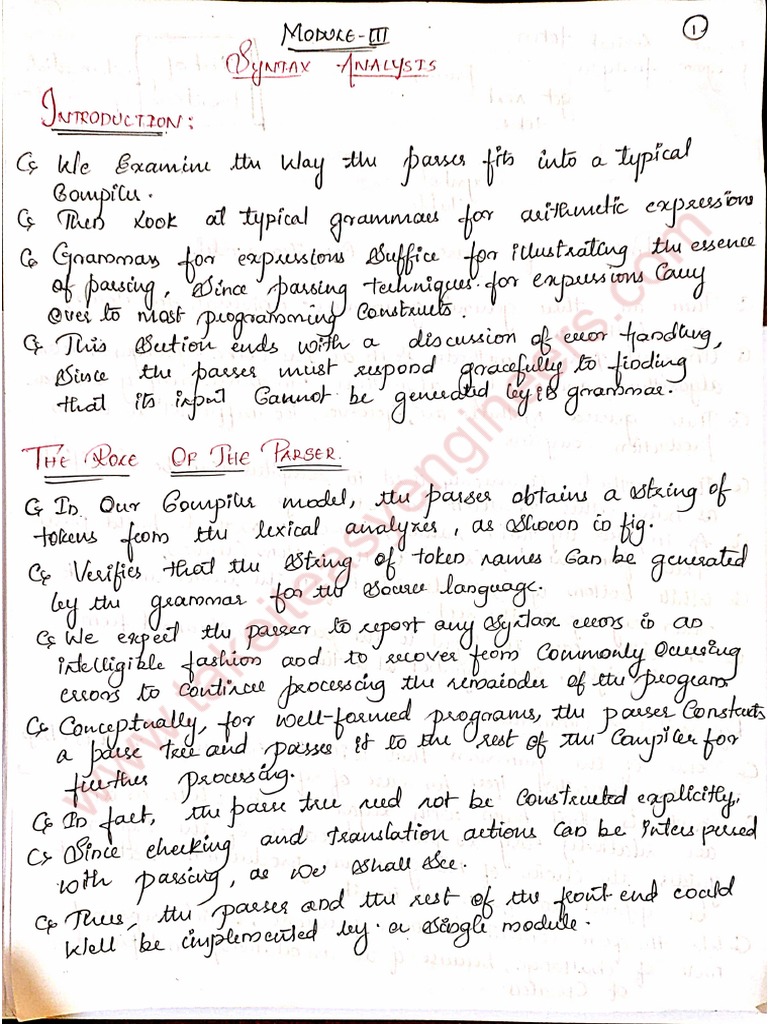 MODULE-III
1
SYNTAX ANALYSIS
INTRODUCTION:
We Examine the way the parser fits into a typical
Compiler.
Then Look at typical grammars for arithmetic expressions
Grammars for expressions Suffice for illustrating the essence
of parsing, Since parsing techniques for expressions Carry
Over to most programming Constructs.
This Section ends with a discussion of error handling,
Since the parser must respond gracefully to finding
that its input Cannot be generated by its grammar.
THE ROLE OF THE PARSER.
In Our Compiler model, the parser obtains a String of
tokens from the lexical analyzer, as Shown in fig.
Verifies that the String of token names Can be generated
by the grammar for the Source language.
We expect the parser to report any Syntax errors in an
intelligible fashion and to recover from Commonly Occuring
errors to Continue processing the remainder of the program
Conceptually, for well-formed programs, the parser Constructs
a parse tree and passes it to the rest of the Compiler for
further processing.
In fact, the parse tree need not be Constructed explicitly,
Since checking and translation actions Can be inter persed
with parsing, as we shall See.
Thus, the parser and the rest of the front end could
Well be implemented by a Single module.
www.takeiteasyengineers.com